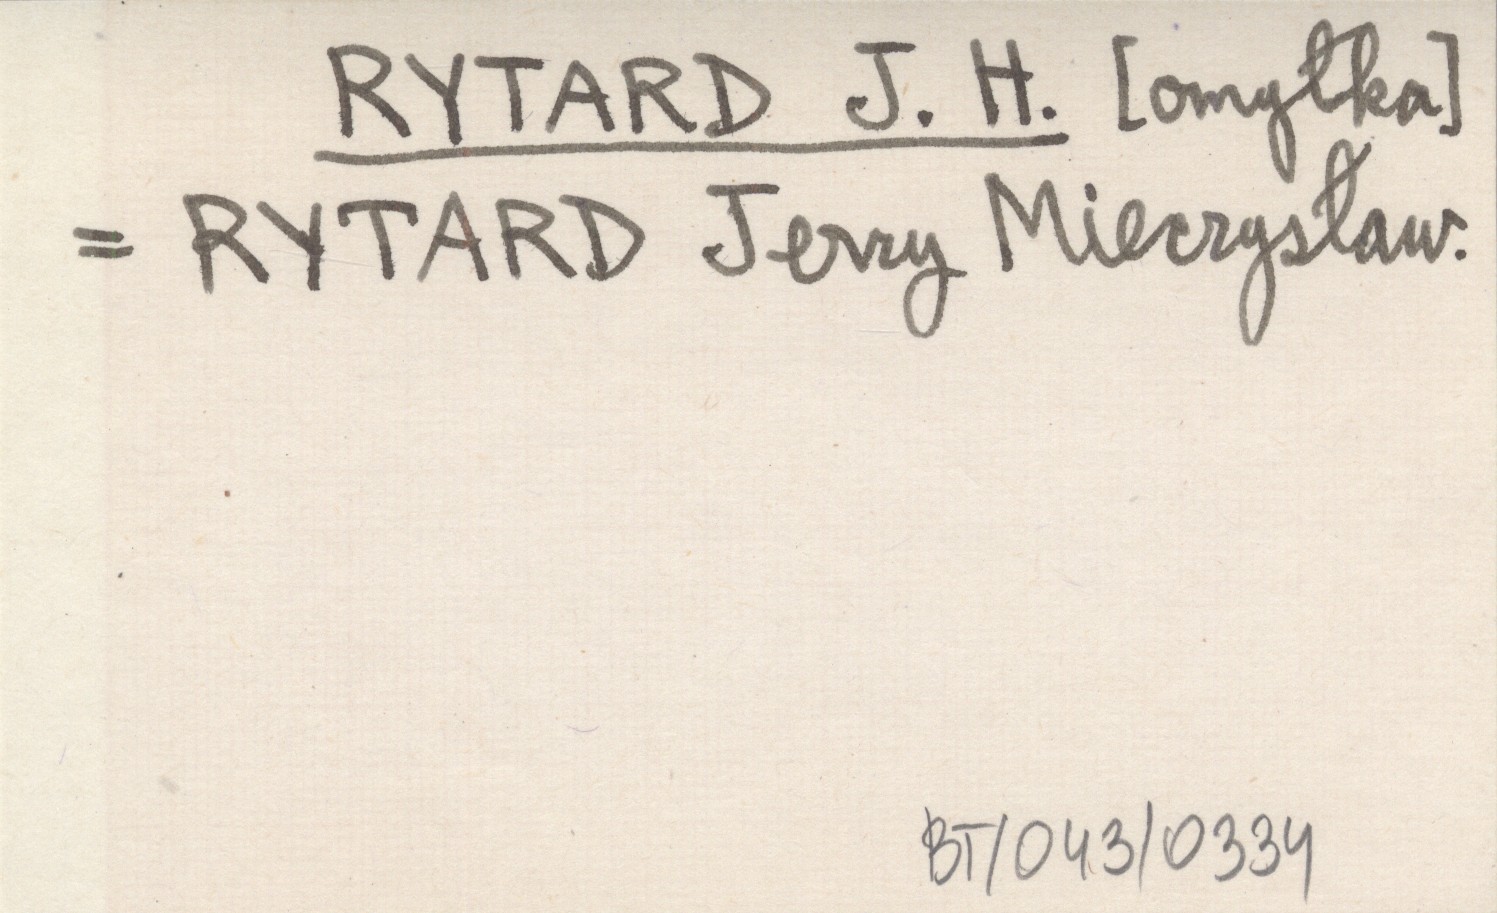 RYTARD J. H. [omyłka]
= RYTARD Jerzy Mieczysław.
BT/043/0334